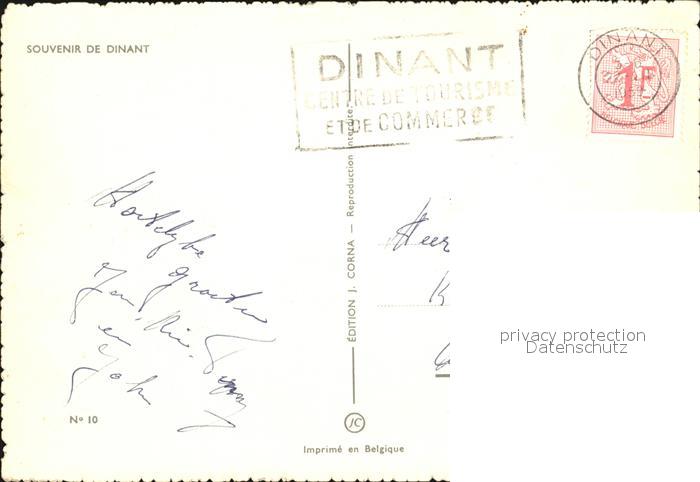 SOUVENIR DE DINANT
DINANT
CENTRE DE TOURISME
ET DE COMMERCE
DINANT
1F
Hartelyke
groeten
Jan, Ria,
en
John
Heer
K
ÉDITION J. CORNA — Reproduction interdite.
JC
Nº 10
Imprimé en Belgique
privacy protection
Datenschutz